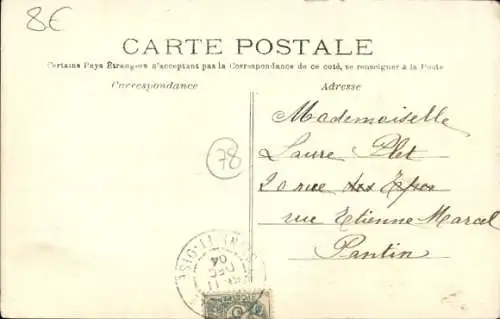 8€
CARTE POSTALE
Certains Pays Étrangers n'acceptant pas la Correspondance de ce coté, se renseigner à la Poste
Correspondance
Adresse
Mademoiselle
Laure Plet
20 rue des
rue Etienne Marcel
Pantin
78
11
DEC
04